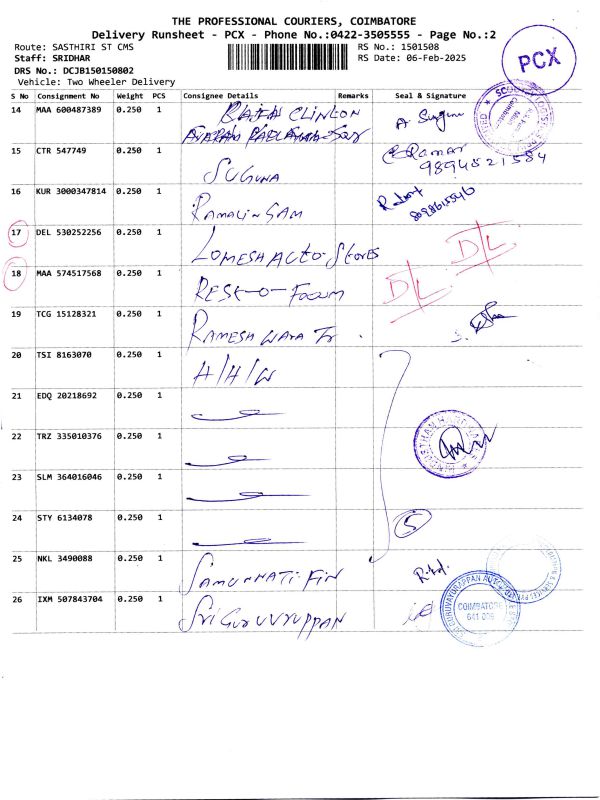 THE PROFESSIONAL COURIERS, COIMBATORE
Delivery Runsheet - PCX - Phone No.:0422-3505555 - Page No.:2
Route: SASTHIRI ST CMS
RS No.: 1501508
Staff: SRIDHAR
RS Date: 06-Feb-2025
DRS No.: DCJB150150802
Vehicle: Two Wheeler Delivery
PCX
S No Consignment No Weight PCS Consignee Details Remarks Seal & Signature
14 MAA 600487389 0.250 1
15 CTR 547749 0.250 1 SUGUNA
9894521584
16 KUR 3000347814 0.250 1 RAMALINGAM
17 DEL 530252256 0.250 1 LOMESH AUTO Stores D/L
18 MAA 574517568 0.250 1 D/L
19 TCG 15128321 0.250 1 RAMESH
20 TSI 8163070 0.250 1 H/H/W
21 EDQ 20218692 0.250 1
22 TRZ 335010376 0.250 1
23 SLM 364016046 0.250 1
24 STY 6134078 0.250 1 5
25 NKL 3490088 0.250 1 SAMUNNATI FIN
26 IXM 507843704 0.250 1 Sri GURUVVYUPPAN
COIMBATORE
641 009